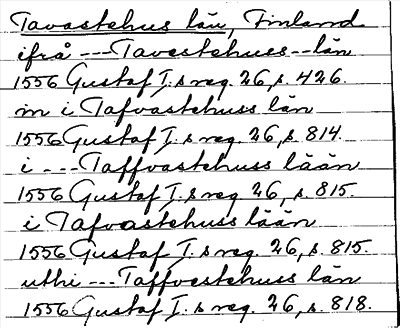 Tavastehus län, Finland.
ifrå --- Tavestehuss -- län
1556 Gustaf I.s reg. 26, s. 426.
m i Tafvastehuss län
1556 Gustaf I.s reg. 26, s. 814.
i --- Taffvastehuss lään
1556 Gustaf I.s reg. 26, s. 815.
i Tafvastehuss lään
1556 Gustaf I.s reg. 26, s. 815.
uthi --- Taffvestehuss län
1556 Gustaf I.s reg. 26, s. 818.